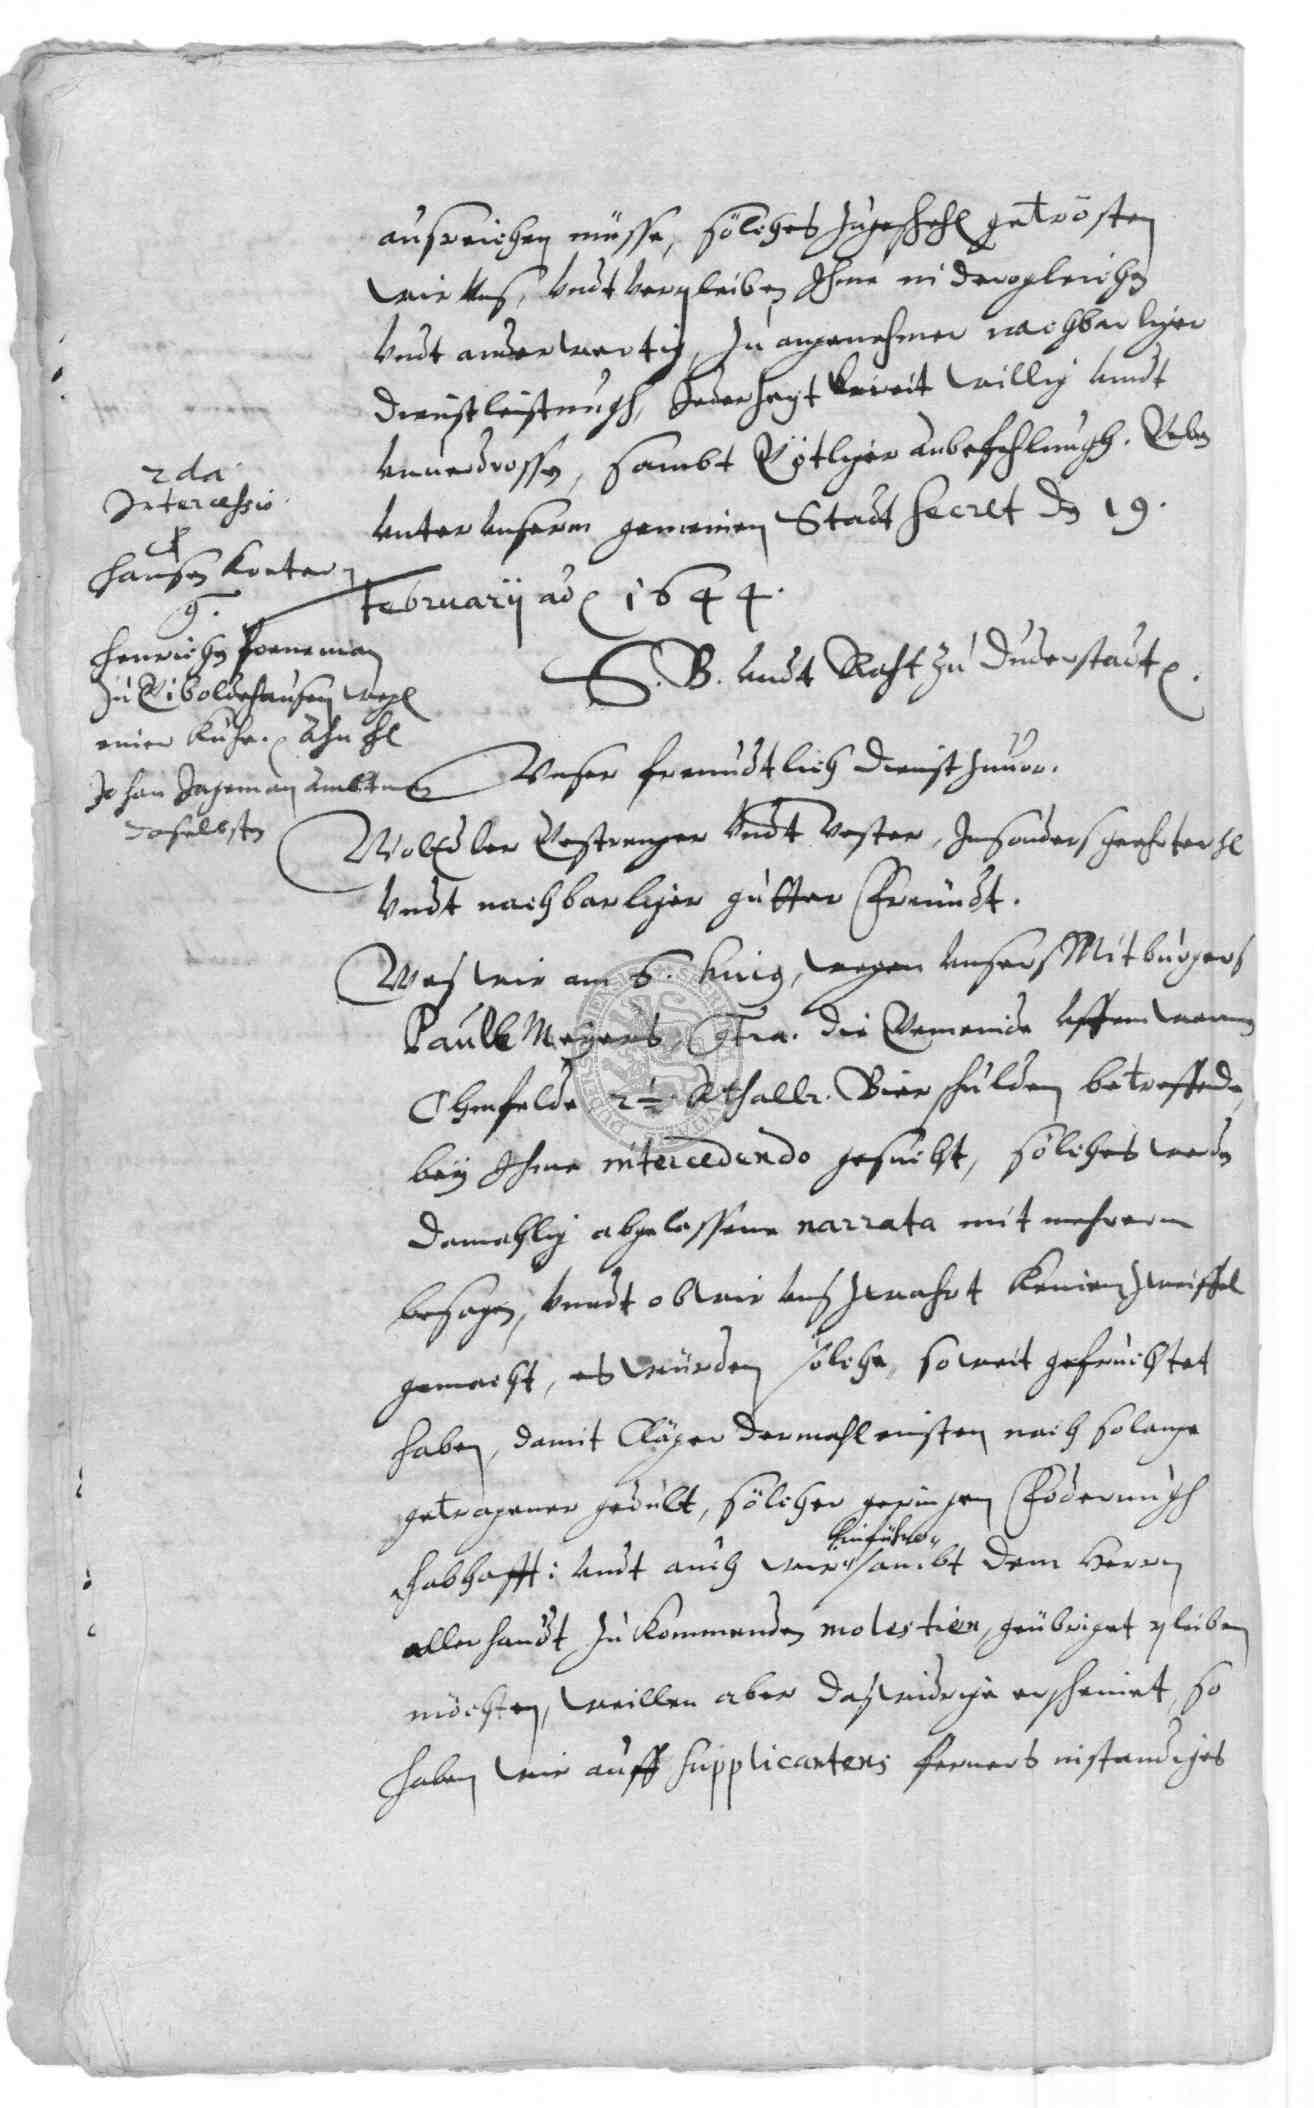 außreichen müsse, sölches zugeschehen getrösten
wir Uns, Undt verpleiben Ihme in dergleichen
Undt anderwertig, zu angenehmer nachbarlicher
Dienstleistungh, Jederzeyt bereit willig undt
unverdrossen, sambt Götlicher anbefehlungh. Geben
unter unserm gemeinen Stadt Secret den 19.
Februarij ao 1644.
S. B. undt Raht zu Duderstadt
2da
Intercessio
p
Hansen Konter
c.
Henrichen
zu Giboldehausen wegen
einer Kuhe. Ahn H.
Johan Jageman Ambtman
daselbsten
Unser freundtlich Dienst zuvor.
WolEdler Gestrenger Undt Vester, Insonders geehrter H.
Undt nachbarlicher gutter Freundt.
Was wir am 6. huius, wegen unsers Mitburgers
Paull Meyers, Contra. die Gemeinde
Ohmfelde 2½ Rthallr. Bier schulden betreffende,
beÿ Ihme intercedendo gesucht, sölches werden
damahlig abgelassene narrata mit mehrerm
besagen, Unndt ob wir uns zwahrt keinen zweiffel
gemacht, es würden sölche, so weit gefruchtet
haben, damit Kläger dermahleinsten nach so langer
getragener gedult, sölcher geringen Föderungh
habhafft: undt auch wir hinführo sambt dem Herrn
allerhandt zukommenden molestien, geübriget pleiben
möchten, weillen aber daß widrige erscheinet, so
haben wir auff Supplicantens ferners instandiges